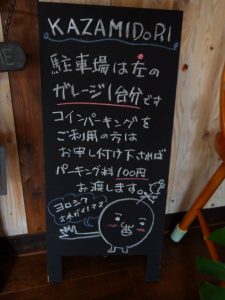 KAZAMIDORI
駐車場は左の
ガレージ1台分です
コインパーキングを
ご利用の方は
お申し付け下されば
パーキング料100円
お渡しします。
ヨロシク
おねがいします